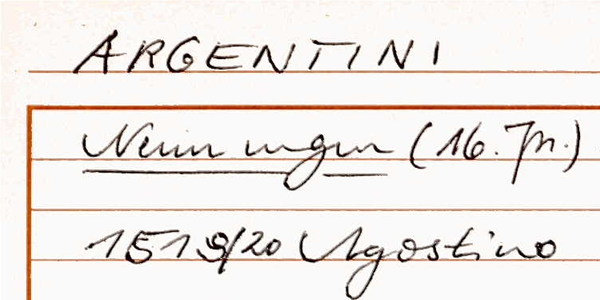 ARGENTINI
Nennungen (16. Jh.)
1519/20 Agostino